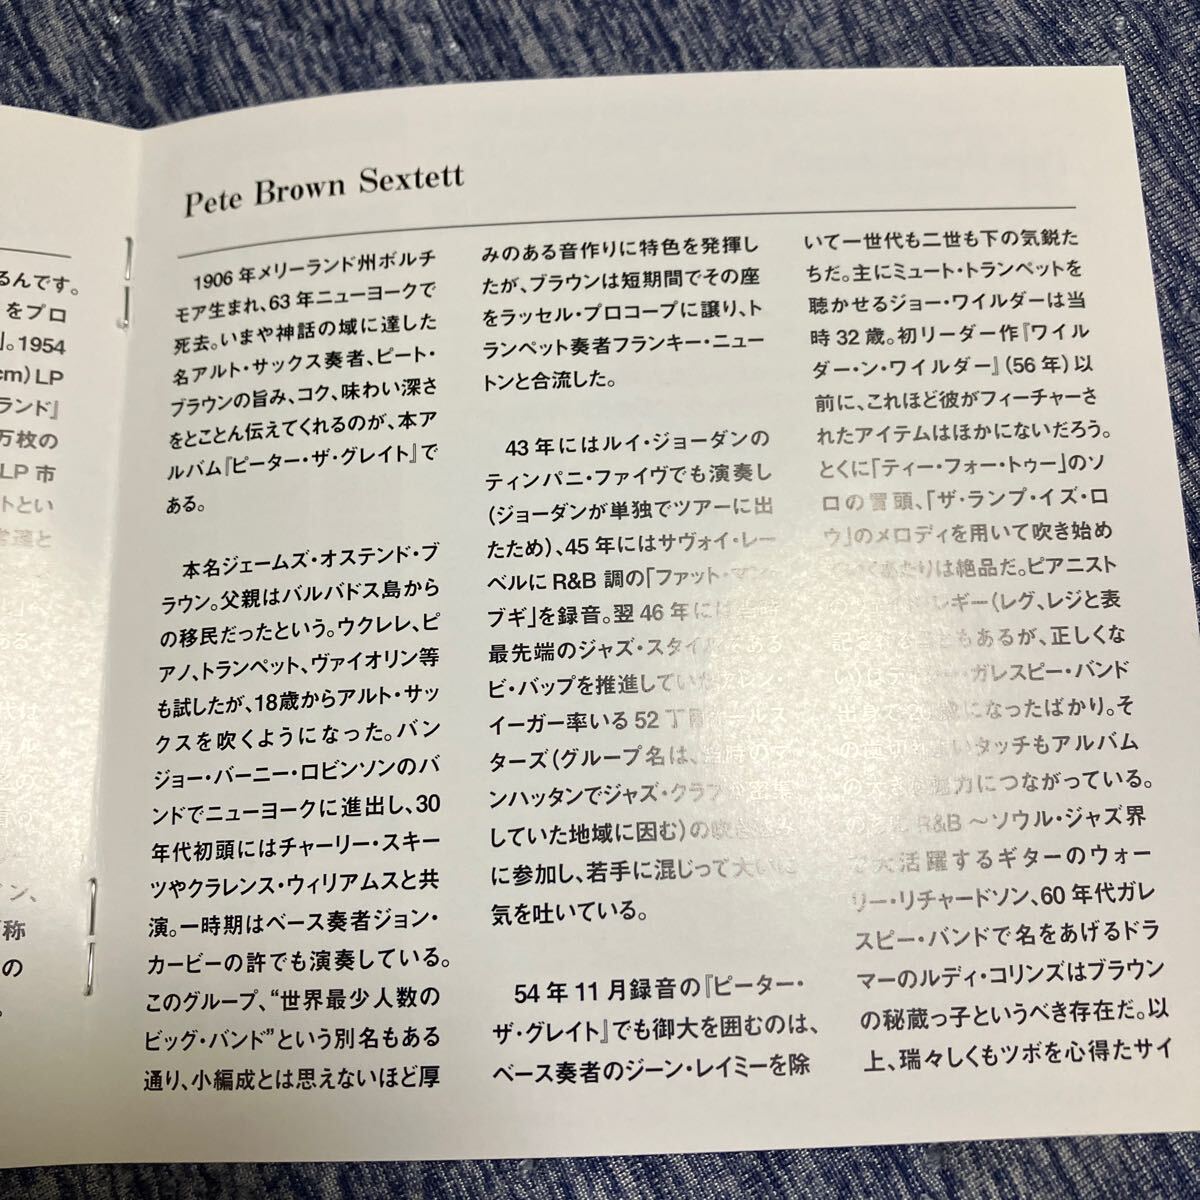 るんです。
をプロ
』。1954
cm）LP
ランド』
万枚の
LP 市
トとい
Pete Brown Sextett
1906 年メリーランド州ボルチ
モア生まれ、63 年ニューヨークで
死去。いまや神話の域に達した
名アルト・サックス奏者、ピート・
ブラウンの旨み、コク、味わい深さ
をとことん伝えてくれるのが、本ア
ルバム『ピーター・ザ・グレイト』で
ある。
本名ジェームズ・オステンド・ブ
ラウン。父親はバルバドス島から
の移民だったという。ウクレレ、ピ
アノ、トランペット、ヴァイオリン等
も試したが、18歳からアルト・サッ
クスを吹くようになった。バン
ジョー・バーニー・ロビンソンのバ
ンドでニューヨークに進出し、30
年代初頭にはチャーリー・スキー
ツやクラレンス・ウィリアムスと共
演。一時期はベース奏者ジョン・
カービーの許でも演奏している。
このグループ、“世界最少人数の
ビッグ・バンド”という別名もある
通り、小編成とは思えないほど厚
みのある音作りに特色を発揮し
たが、ブラウンは短期間でその座
をラッセル・プロコープに譲り、ト
ランペット奏者フランキー・ニュー
トンと合流した。
43 年にはルイ・ジョーダンの
ティンパニ・ファイヴでも演奏し
（ジョーダンが単独でツアーに出
たため）、45 年にはサヴォイ・レー
ベルに R&B 調の「ファット・マン・
ブギ」を録音。翌 46 年には当時
最先端のジャズ・スタイルである
ビ・バップを推進していたアレン・
イーガー率いる 52 丁目
ターズ（グループ名は、当時のマ
ンハッタンでジャズ・クラブが密集
していた地域に因む）の吹き込み
に参加し、若手に混じって大いに
気を吐いている。
54 年 11 月録音の『ピーター・
ザ・グレイト』でも御大を囲むのは、
ベース奏者のジーン・レイミーを除
いて一世代も二世も下の気鋭た
ちだ。主にミュート・トランペットを
聴かせるジョー・ワイルダーは当
時 32 歳。初リーダー作『ワイル
ダー・ン・ワイルダー』（56 年）以
前に、これほど彼がフィーチャーさ
れたアイテムはほかにないだろう。
とくに「ティー・フォー・トゥー」のソ
ロの冒頭、「ザ・ランプ・イズ・ロ
ウ」のメロディを用いて吹き始め
あたりは絶品だ。ピアニスト
ギー（レグ、レジと表
もあるが、正しくな
ガレスピー・バンド
になったばかり。そ
いタッチもアルバム
の大きな魅力につながっている。
R&B～ソウル・ジャズ界
で大活躍するギターのウォー
リー・リチャードソン、60 年代ガレ
スピー・バンドで名をあげるドラ
マーのルディ・コリンズはブラウン
の秘蔵っ子というべき存在だ。以
上、瑞々しくもツボを心得たサイ